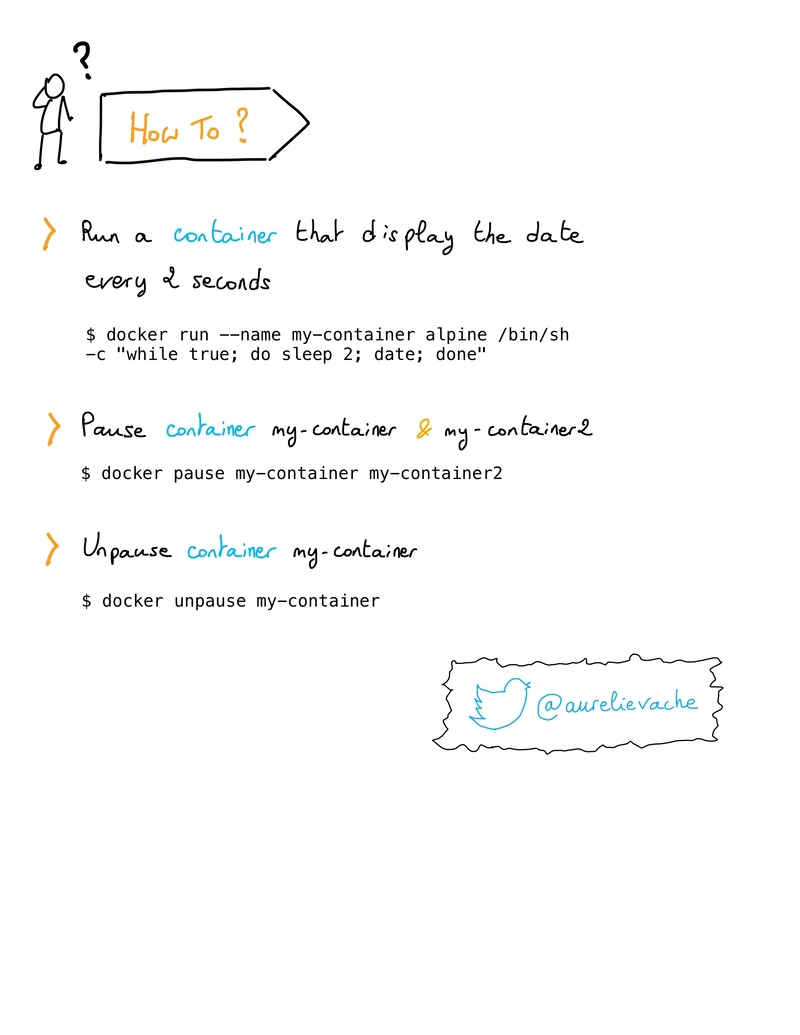 ?
How To ?
Run a container that display the date
every 2 seconds
$ docker run --name my-container alpine /bin/sh
-c "while true; do sleep 2; date; done"
Pause container my-container & my-container2
$ docker pause my-container my-container2
Unpause container my-container
$ docker unpause my-container
@aurelievache